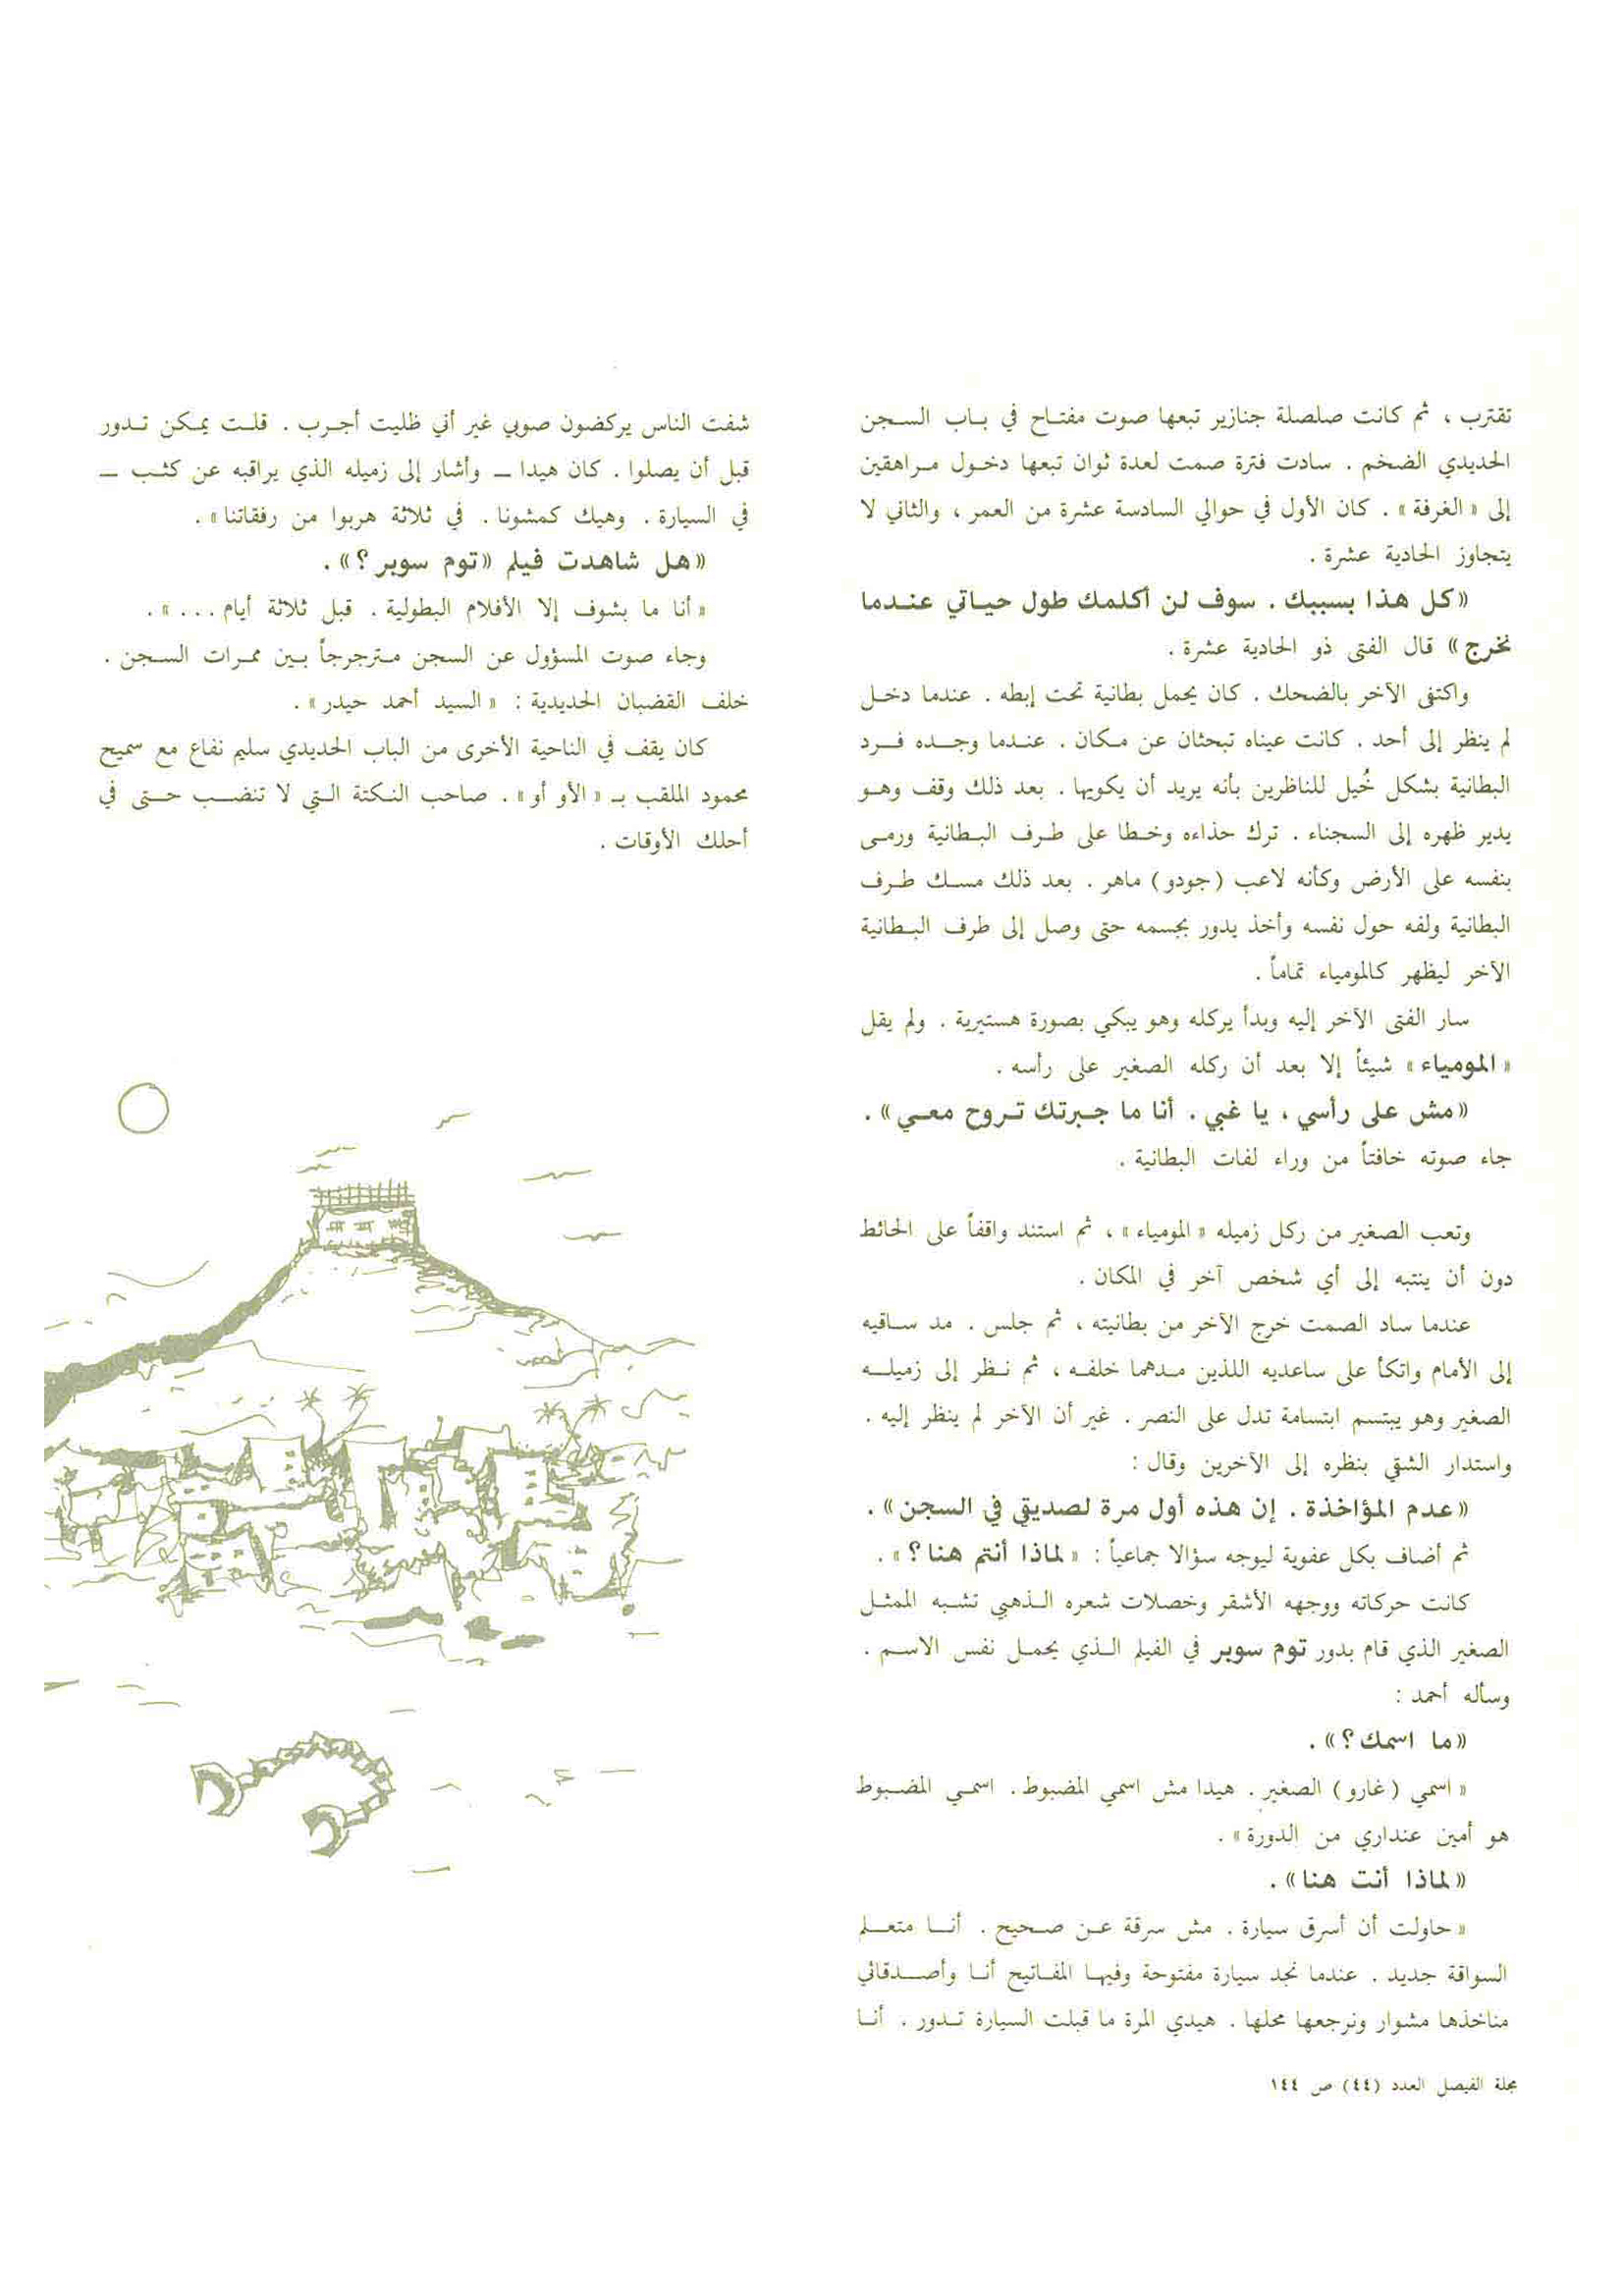 تقترب ، ثم كانت صلصلة جنازير تبعها صوت مفتاح في باب السجن
الحديدي الضخم . سادت فترة صمت لعدة ثوان تبعها دخول مراهقين
إلى « الغرفة » . كان الأول في حوالي السادسة عشرة من العمر ، والثاني لا
يتجاوز الحادية عشرة .
« كل هذا بسببك . سوف لن أكلمك طول حياتي عندما
نخرج » قال الفتى ذو الحادية عشرة .
واكتفى الآخر بالضحك . كان يحمل بطانية تحت إبطه . عندما دخل
لم ينظر إلى أحد . كانت عيناه تبحثان عن مكان . عندما وجده فرد
البطانية بشكل خُيل للناظرين بأنه يريد أن يكويها . بعد ذلك وقف وهو
يدير ظهره إلى السجناء . ترك حذاءه وخطا على طرف البطانية ورمى
بنفسه على الأرض وكأنه لاعب ( جودو ) ماهر . بعد ذلك مسك طرف
البطانية ولفه حول نفسه وأخذ يدور بجسمه حتى وصل إلى طرف البطانية
الآخر ليظهر كالمومياء تماماً .
سار الفتى الآخر إليه وبدأ يركله وهو يبكي بصورة هستيرية . ولم يقل
« المومياء » شيئاً إلا بعد أن ركله الصغير على رأسه .
« مش على رأسي ، يا غبي . أنا ما جبرتك تروح معي » .
جاء صوته خافتاً من وراء لفات البطانية .
وتعب الصغير من ركل زميله « المومياء » ، ثم استند واقفاً على الحائط
دون أن ينتبه إلى أي شخص آخر في المكان .
عندما ساد الصمت خرج الآخر من بطانيته ، ثم جلس . مد ساقيه
إلى الأمام واتكأ على ساعديه اللذين مدهما خلفه ، ثم نظر إلى زميله
الصغير وهو يبتسم ابتسامة تدل على النصر . غير أن الآخر لم ينظر إليه .
واستدار الشقي بنظره إلى الآخرين وقال :
« عدم المؤاخذة . إن هذه أول مرة لصديقي في السجن » .
ثم أضاف بكل عفوية ليوجه سؤالا جماعياً : « لماذا أنتم هنا ؟ » .
كانت حركاته ووجهه الأشقر وخصلات شعره الذهبي تشبه الممثل
الصغير الذي قام بدور توم سوير في الفيلم الذي يحمل نفس الاسم .
وسأله أحمد :
« ما اسمك ؟ » .
« اسمي ( غارو ) الصغير . هيدا مش اسمي المضبوط . اسمي المضبوط
هو أمين عنداري من الدورة » .
« لماذا أنت هنا » .
« حاولت أن أسرق سيارة . مش سرقة عن صحيح . أنا متعلم
السواقة جديد . عندما نجد سيارة مفتوحة وفيها المفاتيح أنا وأصدقائي
مناخذها مشوار ونرجعها محلها . هيدي المرة ما قبلت السيارة تدور . أنا
شفت الناس يركضون صوبي غير أني ظليت أجرب . قلت يمكن تدور
قبل أن يصلوا . كان هيدا ــ وأشار إلى زميله الذي يراقبه عن كثب ــ
في السيارة . وهيك كمشونا . في ثلاثة هربوا من رفقاتنا » .
« هل شاهدت فيلم « توم سوير ؟ » .
« أنا ما بشوف إلا الأفلام البطولية . قبل ثلاثة أيام . . . » .
وجاء صوت المسؤول عن السجن مترجرجاً بين ممرات السجن .
خلف القضبان الحديدية : « السيد أحمد حيدر » .
كان يقف في الناحية الأخرى من الباب الحديدي سليم نفاع مع سميح
محمود الملقب بـ « الأو أو » . صاحب النكتة التي لا تنضب حتى في
أحلك الأوقات .
مجلة الفيصل العدد (٤٤) ص ١٤٤